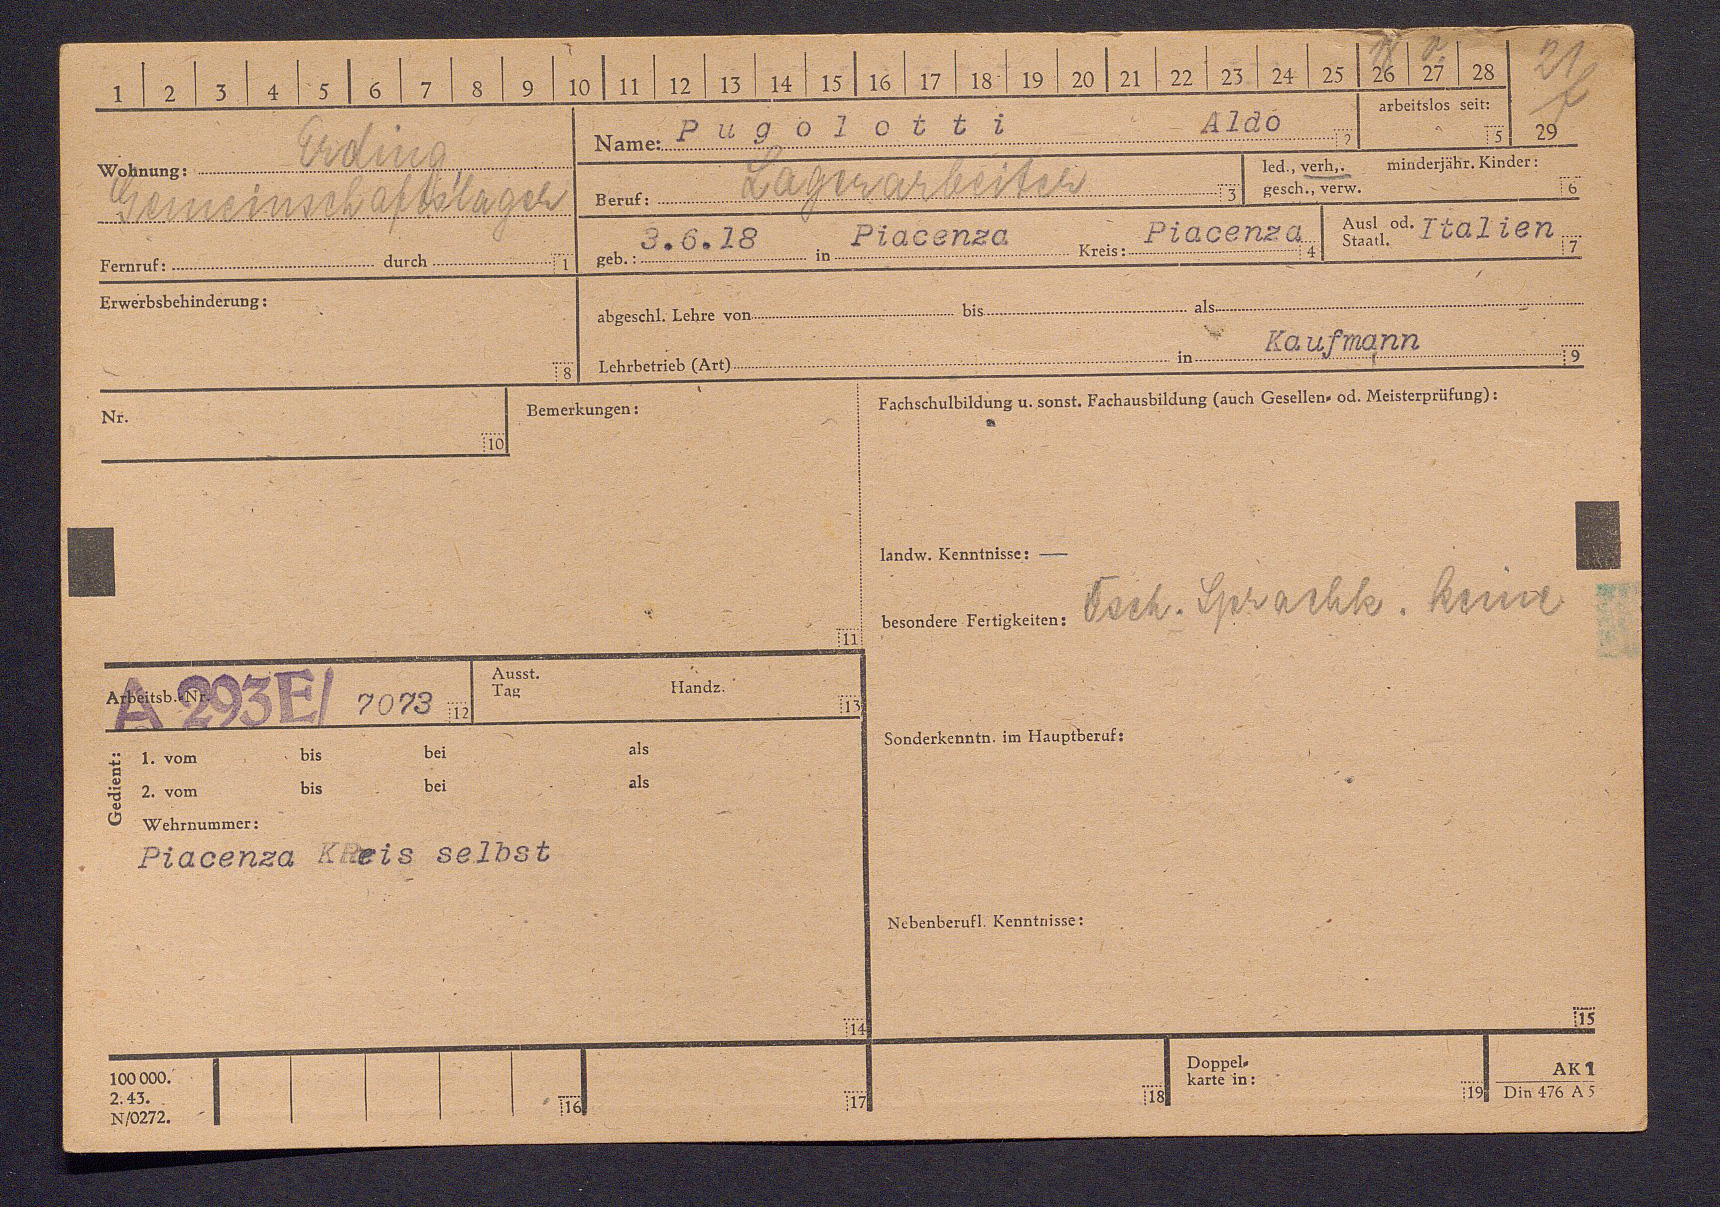 1 2 3 4 5 6 7 8 9 10 11 12 13 14 15 16 17 18 19 20 21 22 23 24 25 26 27 28 29
21
Wohnung: Erding
Gemeinschaftslager
Fernruf: durch 1
Name: Pugolotti Aldo 2
arbeitslos seit: 5
Beruf: Lagerarbeiter 3
led., verh., minderjähr. Kinder:
gesch., verw. 6
geb.: 3.6.18 in Piacenza Kreis: Piacenza 4
Ausl od. Italien
Staatl. 7
Erwerbsbehinderung:
8
abgeschl. Lehre von bis als
Kaufmann
Lehrbetrieb (Art) in 9
Nr.
10
Bemerkungen:
11
Fachschulbildung u. sonst. Fachausbildung (auch Gesellen- od. Meisterprüfung):
landw. Kenntnisse: —
besondere Fertigkeiten: Dsch. Sprachk. keine
Sonderkenntn. im Hauptberuf:
Nebenberufl. Kenntnisse:
15
Arbeitsb.-Nr. A 293E/ 7073 12
Ausst.
Tag Handz. 13
Gedient:
1. vom bis bei als
2. vom bis bei als
Wehrnummer:
Piacenza Kreis selbst
14
100 000.
2. 43.
N/0272.
16
17
18
Doppel-
karte in: 19
AK 1
Din 476 A 5